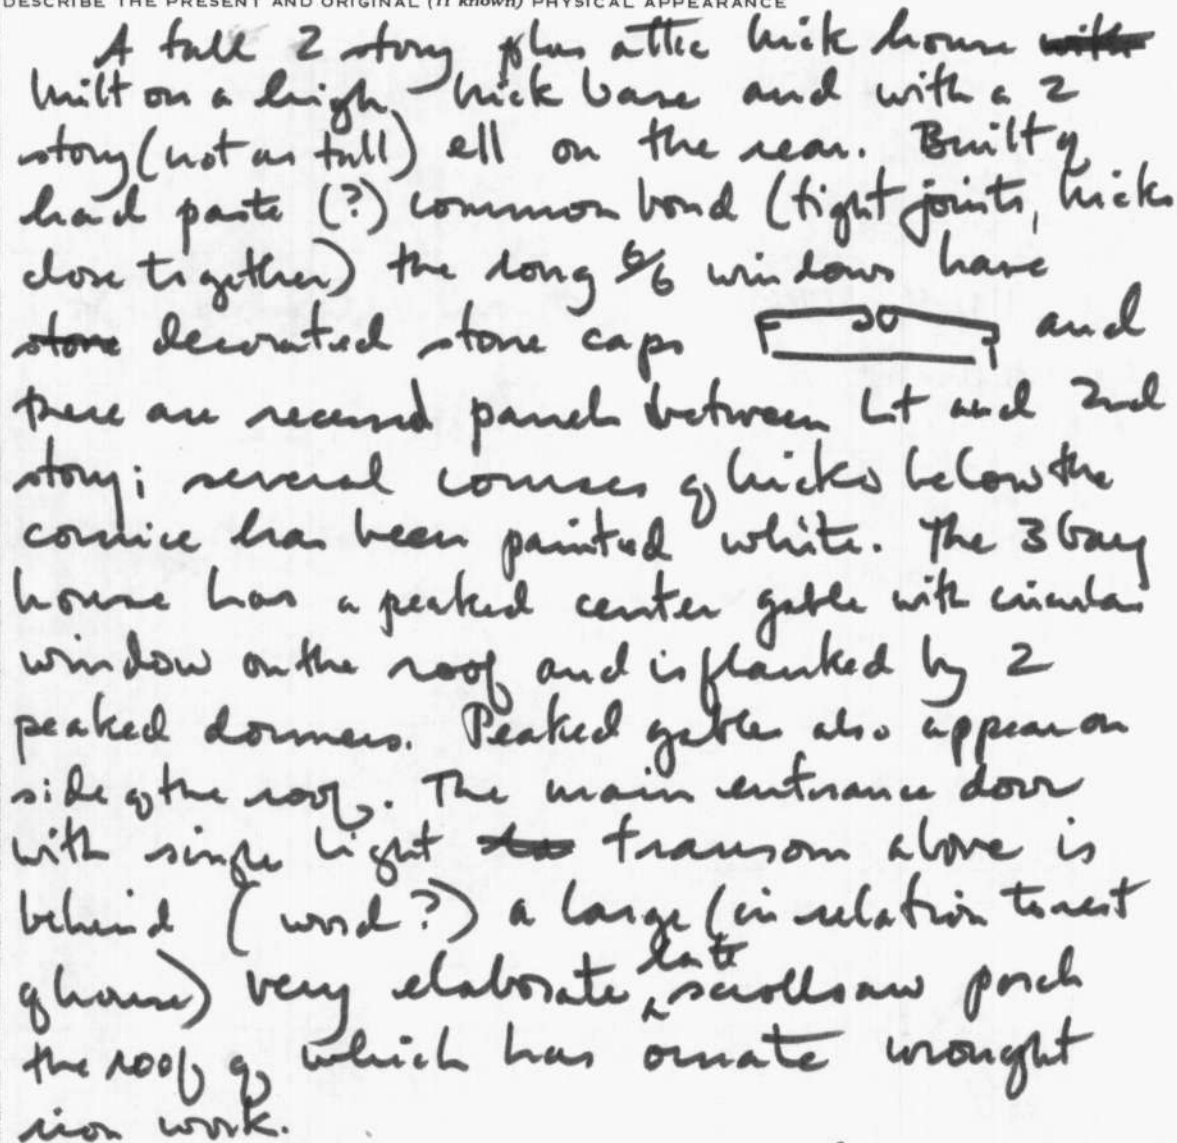 DESCRIBE THE PRESENT AND ORIGINAL (If known) PHYSICAL APPEARANCE
A tall 2 story plus attic brick house with
built on a high brick base and with a 2
story (not as tall) ell on the rear. Built of
hard paste (?) common bond (tight joints, bricks
close together) the long 6/6 windows have
stone decorated stone caps and
there are recessed panels between 1st and 2nd
story; several courses of bricks below the
cornice has been painted white. The 3 bay
house has a peaked center gable with circular
window on the roof and is flanked by 2
peaked dormers. Peaked gables also appear on
side of the roof. The main entrance door
with single light transom above is
behind (word?) a large (in relation to rest
of house) very elaborate late scrollsaw porch
the roof of which has ornate wrought
iron work.